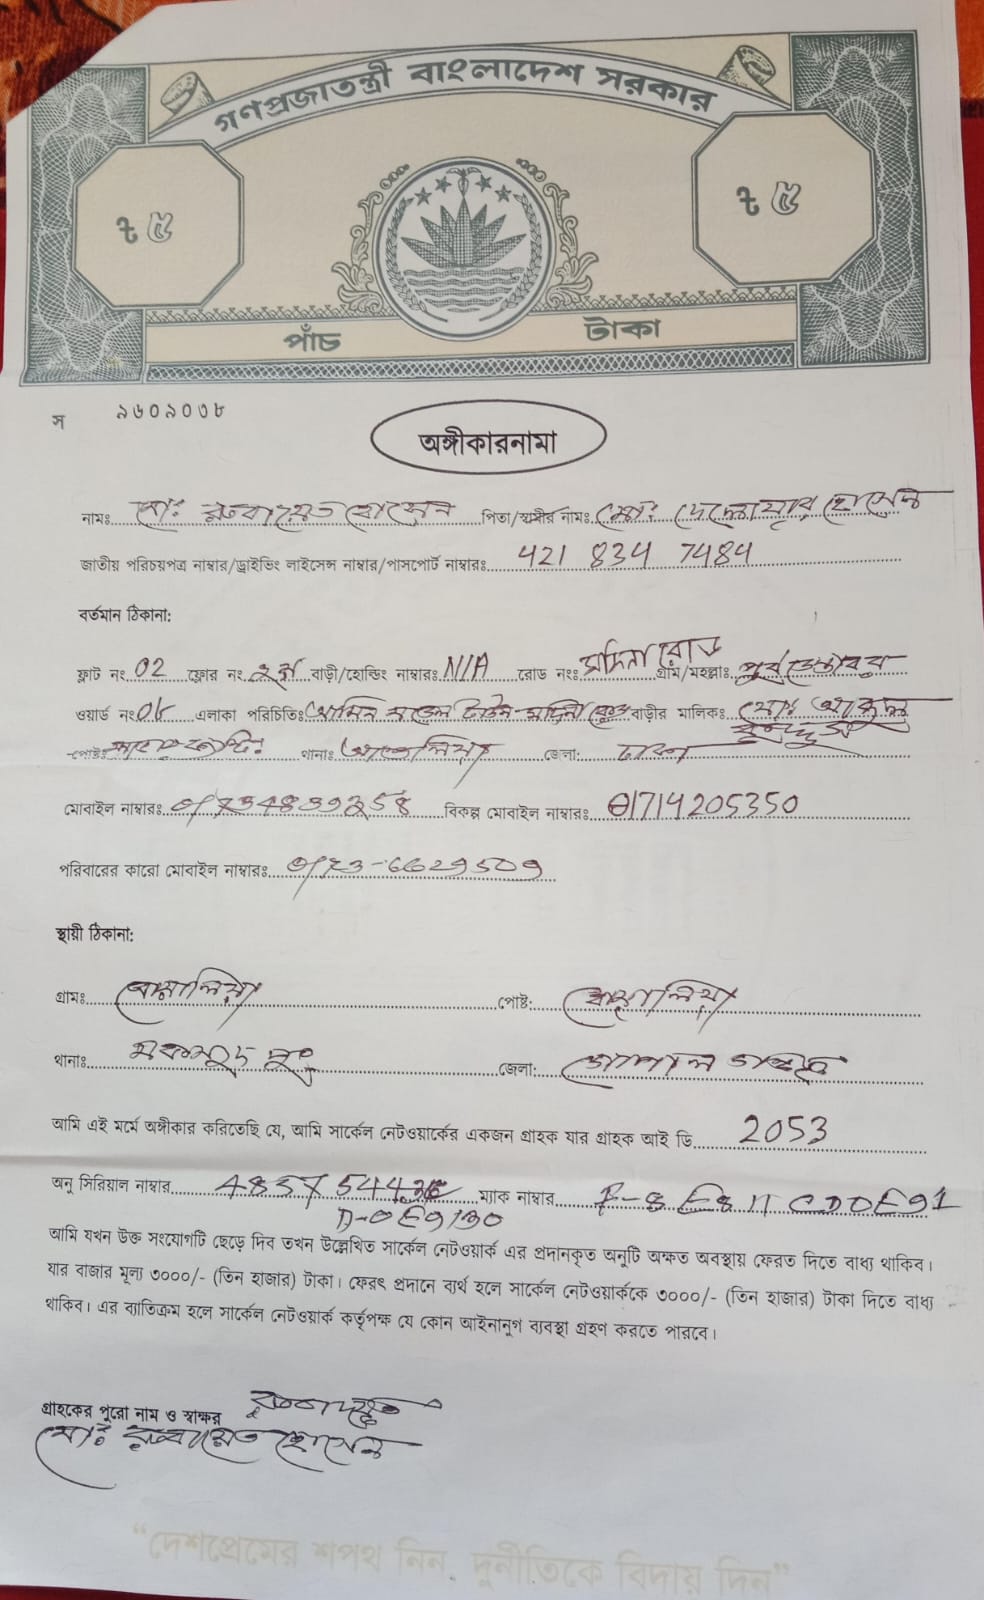 গণপ্রজাতন্ত্রী বাংলাদেশ সরকার
৳ ৫ ৳ ৫
পাঁচ টাকা
স ৯৬০৯০৩৮
অঙ্গীকারনামা
নামঃ মোঃ রুবায়েত হোসেন পিতা/স্বামীর নামঃ মোঃ দেলোয়ার হোসেন
জাতীয় পরিচয়পত্র নাম্বার/ড্রাইভিং লাইসেন্স নাম্বার/পাসপোর্ট নাম্বারঃ 421 834 7484
বর্তমান ঠিকানা:
ফ্লাট নং 02 ফ্লোর নং ২য় বাড়ী/হোল্ডিং নাম্বারঃ N/A রোড নংঃ মদিনা রোড গ্রাম/মহল্লাঃ পূর্ব
ওয়ার্ড নং 08 এলাকা পরিচিতিঃ আমিন মডেল টাউন মদিনা রোড বাড়ীর মালিকঃ মোঃ আব্দুল কুদ্দুস
পোষ্টঃ থানাঃ আশুলিয়া জেলা: ঢাকা
মোবাইল নাম্বারঃ 01734839258 বিকল্প মোবাইল নাম্বারঃ 01714205350
পরিবারের কারো মোবাইল নাম্বারঃ 0173-6629509
স্থায়ী ঠিকানা:
গ্রামঃ পোষ্ট:
থানাঃ মুকসুদপুর জেলা: গোপালগঞ্জ
আমি এই মর্মে অঙ্গীকার করিতেছি যে, আমি সার্কেল নেটওয়ার্কের একজন গ্রাহক যার গ্রাহক আই ডি 2053
অনু সিরিয়াল নাম্বার 48575443 ম্যাক নাম্বার
D-0E9130
আমি যখন উক্ত সংযোগটি ছেড়ে দিব তখন উল্লেখিত সার্কেল নেটওয়ার্ক এর প্রদানকৃত অনুটি অক্ষত অবস্থায় ফেরত দিতে বাধ্য থাকিব।
যার বাজার মূল্য ৩০০০/- (তিন হাজার) টাকা। ফেরৎ প্রদানে ব্যর্থ হলে সার্কেল নেটওয়ার্ককে ৩০০০/- (তিন হাজার) টাকা দিতে বাধ্য
থাকিব। এর ব্যাতিক্রম হলে সার্কেল নেটওয়ার্ক কর্তৃপক্ষ যে কোন আইনানুগ ব্যবস্থা গ্রহণ করতে পারবে।
গ্রাহকের পুরো নাম ও স্বাক্ষর রুবায়েত
মোঃ রুবায়েত হোসেন
“দেশপ্রেমের শপথ নিন, দুর্নীতিকে বিদায় দিন”